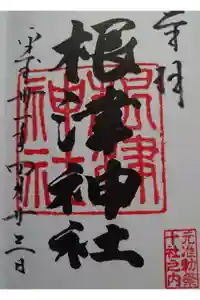 奉拝
根津神社
根津
神社
平成卅一年四月
日
元准勅祭
十社之内